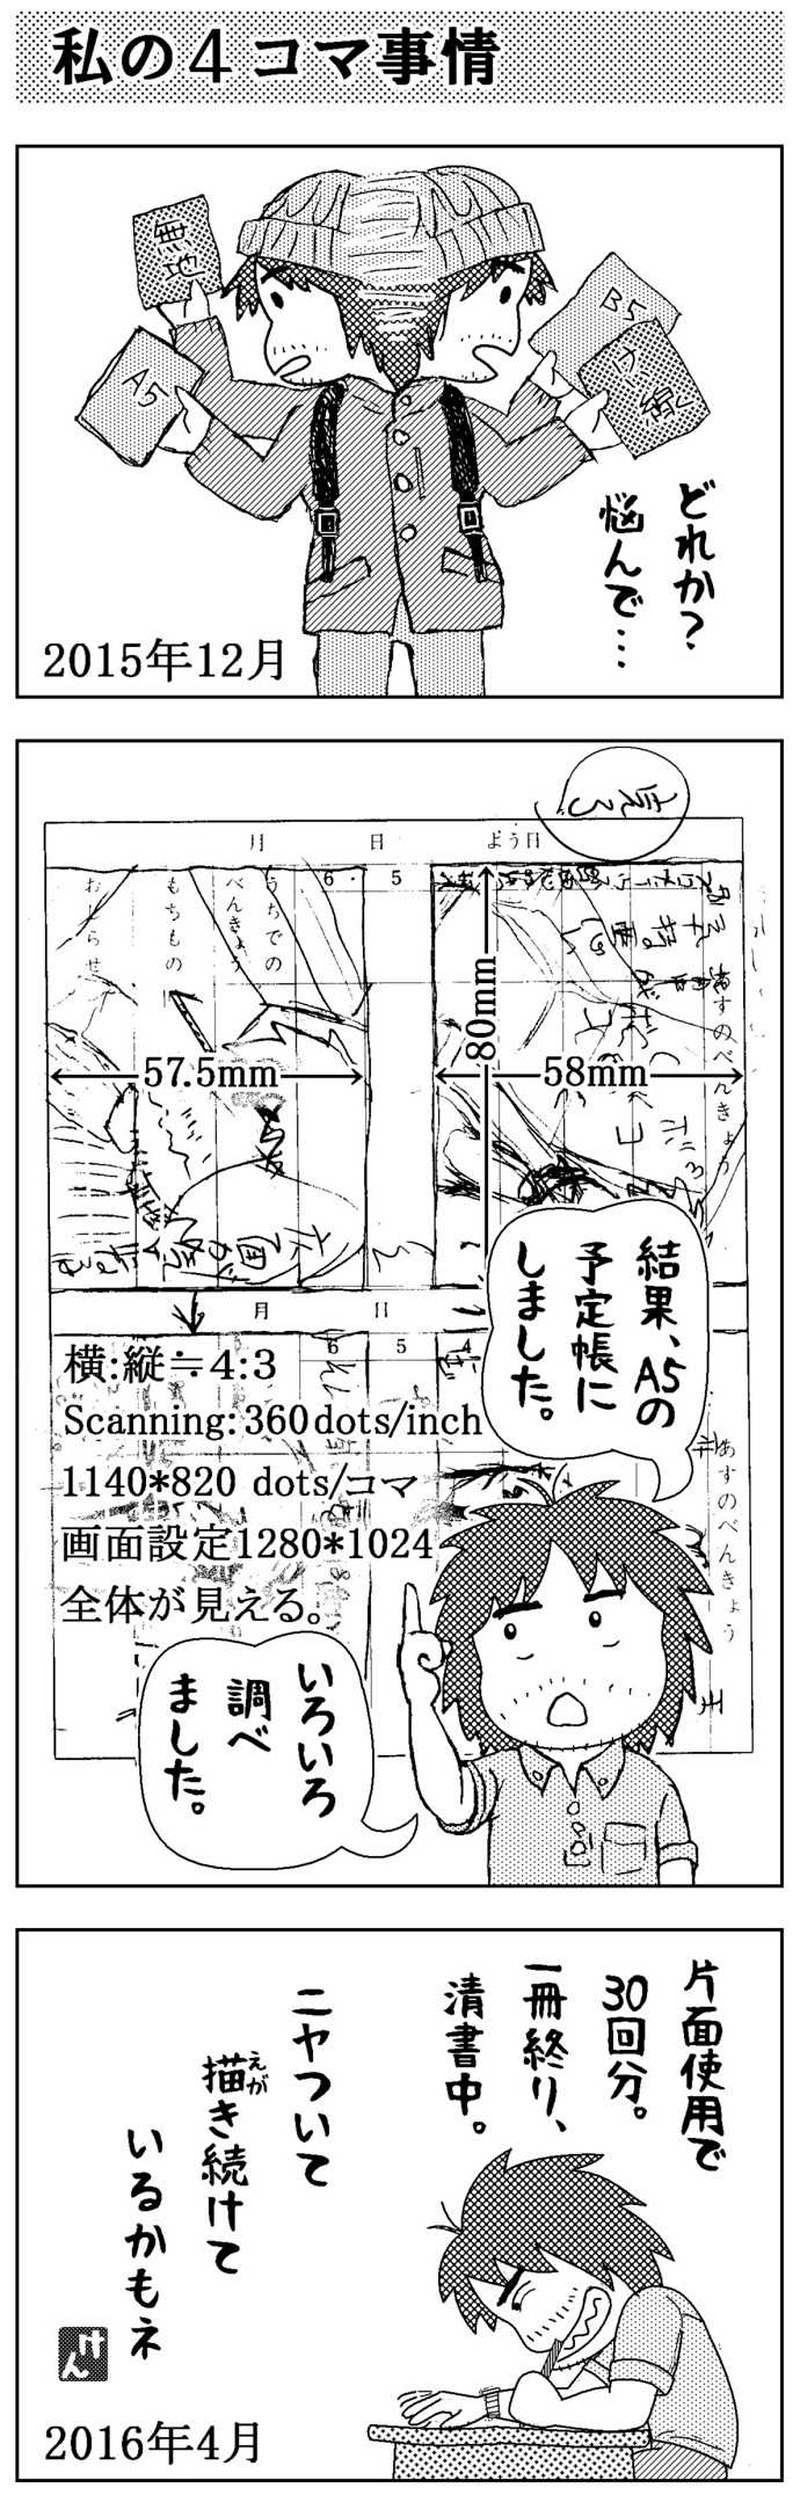 私の4コマ事情
無地
A5
B5
ケイ線
どれか?
悩んで…
2015年12月
月
日
よう日
うちでの
べんきょう
もちもの
おしらせ
6
5
80mm
57.5mm
58mm
あすのべんきょう
結果、A5の
予定帳に
しました。
月
日
6
5
4
横:縦≒4:3
Scanning:360dots/inch
1140*820 dots/コマ
画面設定1280*1024
全体が見える。
あすのべんきょう
いろいろ
調べ
ました。
片面使用で
30回分。
一冊終り、
清書中。
ニヤついて
描き続けて
えが
いるかもネ
けん
2016年4月